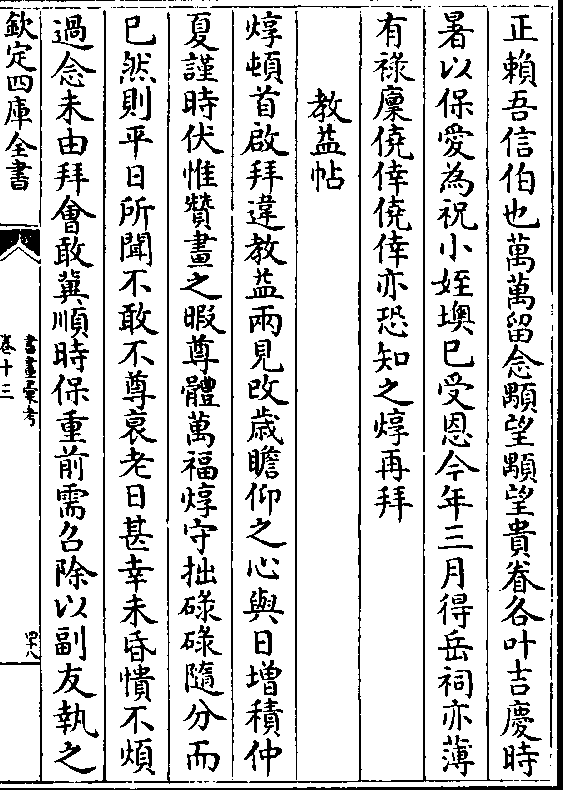 正賴吾信伯也萬萬留念顒望顒望貴眷各叶吉慶時
暑以保愛為祝小姪墺已受恩今年三月得岳祠亦薄
有祿廩僥倖僥倖亦恐知之焞再拜
教益帖
焞頓首啟拜違教益兩見改歳瞻仰之心與日增積仲
夏謹時伏惟贊畫之暇尊體萬福焞守拙碌碌隨分而
已然則平日所聞不敢不尊衰老日甚幸未昏憒不煩
過念未由拜會敢冀順時保重前需召除以副友執之
欽定四庫全書
書畫彙考
卷十三
四八